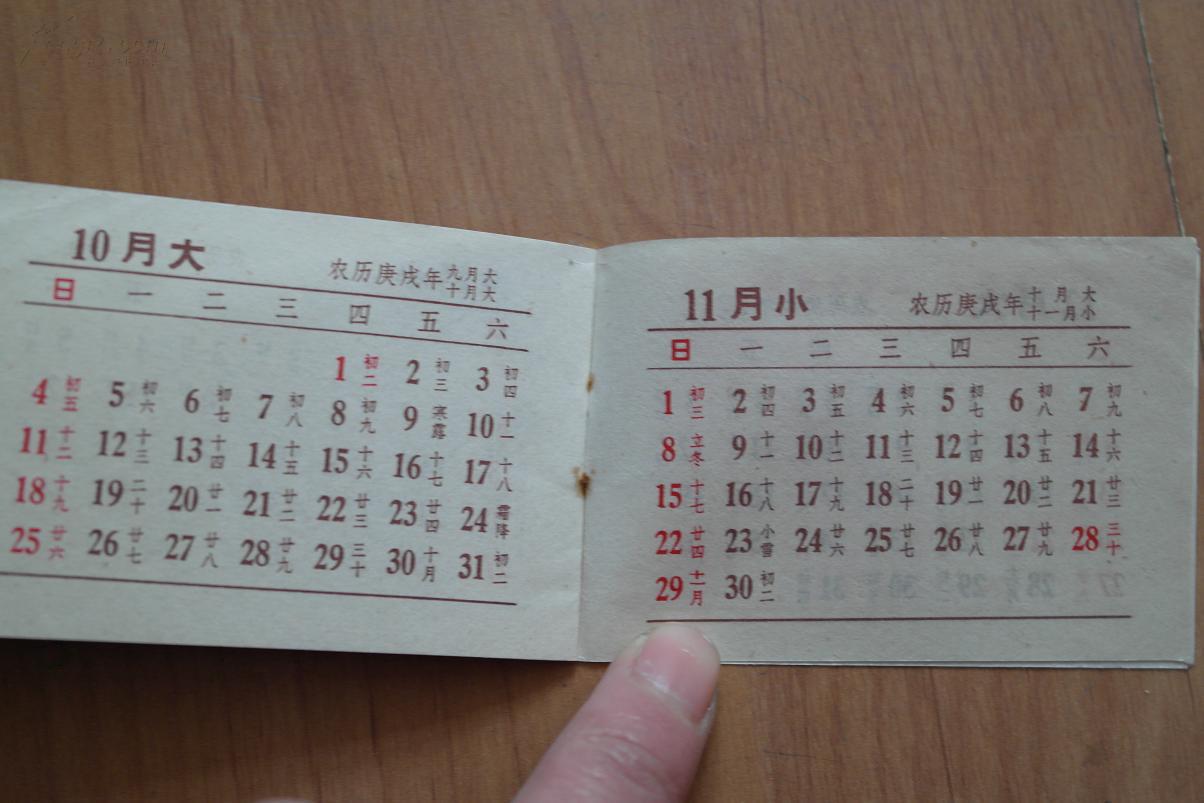 10月大
农历庚戌年九月大
十月大
日 一 二 三 四 五 六
1 初二 2 初三 3 初四
4 初五 5 初六 6 初七 7 初八 8 初九 9 寒露 10 十一
11 十二 12 十三 13 十四 14 十五 15 十六 16 十七 17 十八
18 十九 19 二十 20 廿一 21 廿二 22 廿三 23 廿四 24 霜降
25 廿六 26 廿七 27 廿八 28 廿九 29 三十 30 十月 31 初二
11月小
农历庚戌年十月大
十一月小
日 一 二 三 四 五 六
1 初三 2 初四 3 初五 4 初六 5 初七 6 初八 7 初九
8 立冬 9 十一 10 十二 11 十三 12 十四 13 十五 14 十六
15 十七 16 十八 17 十九 18 二十 19 廿一 20 廿二 21 廿三
22 廿四 23 小雪 24 廿六 25 廿七 26 廿八 27 廿九 28 三十
29 十一月 30 初二